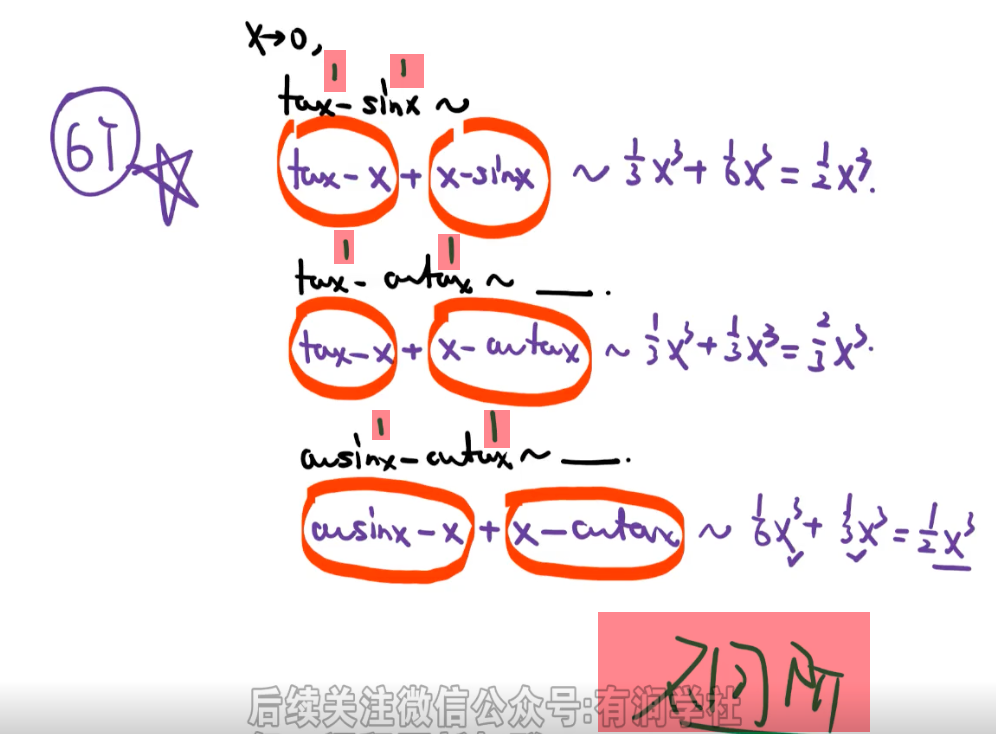 x→0,
1 1
tax - sinx ~
6T
tax - x + x - sinx ~ 1/3 x³ + 1/6 x³ = 1/2 x³.
1 1
tax - arctax ~ ___.
tax - x + x - arctax ~ 1/3 x³ + 1/3 x³ = 2/3 x³.
1 1
arcsinx - arctax ~ ___.
arcsinx - x + x - arctax ~ 1/6 x³ + 1/3 x³ = 1/2 x³
后续关注微信公众号:有润学社